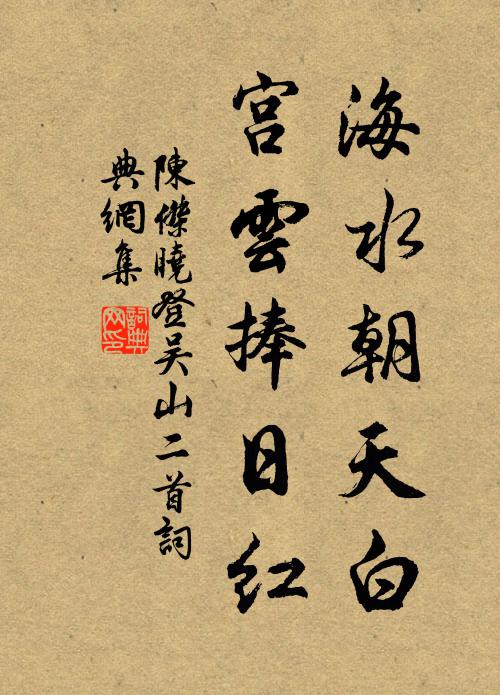 海水朝天白
宫雲捧日紅
陳傑曉登吴山二首詞
典網集
詞典
网印